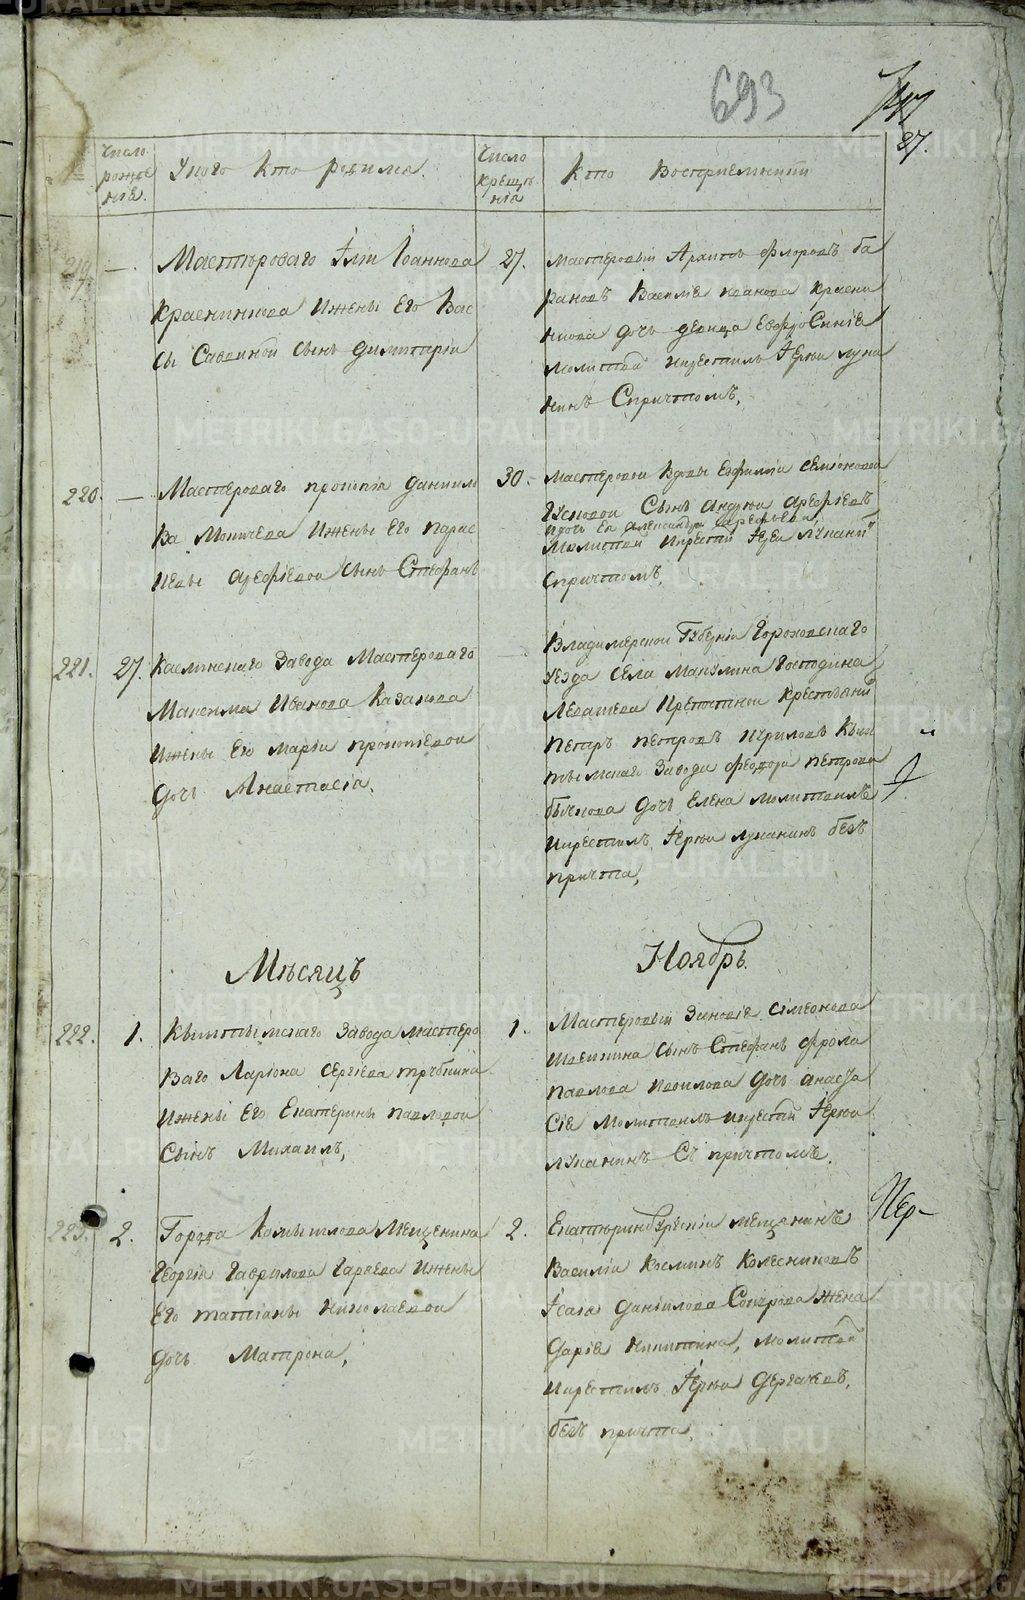 693
27.
Число рожденія.
У кого кто родился.
Число крещенія
Кто Восприемники
219.
Мастероваго Іліи Іоаннова
Краснинкова и жены Его Вас
сы Саввиной сынъ Димитрій
27.
Мастеровый Архипъ Флоровъ Ба
рановъ Василія Иванова Красни
нкова дочь девица Евфросинія
молитвой и крестилъ Іерей Лука
нинъ Спричтомъ,
220.
Мастероваго Прокопія Данило
ва Мокичева и жены Его Парас
кевы Арефіевой сынъ Стефанъ
30.
Мастеровой вдовы Евфиміи Семіоновой
Гусковой Сынъ Андрей Арефіевъ
и дочь ея Александра Арефьева,
Молитвой и крести Іерей Луканинъ
Спричтомъ,
221.
27.
Каслинскаго Завода Мастероваго
Максима Иванова Казакова
и жены Его Маріи Прокопіевой
дочь Анастасія,
Владимерской Губерніи Гороховскаго
уезда села Макулина Господина
Левашева Крепостной крестьянинъ
Петръ Петровъ Куриловъ Кыш
тымскаго Завода Феодора Петрова
Бычкова дочь Елена молитвилъ
и крестилъ Іерей Луканинъ безъ
причта,
Мѣсяцъ
Ноябрь.
222.
1.
Кыштымскаго Завода мастеро
ваго Ларіона Сергіева Трубина
и жены Его Екатерины Павловой
Сынъ Михаилъ,
1.
Мастеровый Зиновіе Сімеонова
Швейкина сынъ Стефанъ Фрола
Павлова Ивойлова дочь Анаста
сіе Молитвилъ и крести Іерей
Луканинъ Съ причтомъ.
223.
2.
Города Камышлова Мещенина
Георгія Гаврилова Гаряева и жены
Его Татіаны Николаевой
дочь Матрона,
2.
Екатеринбургскій мещенинъ
Василій Козминъ Колесниковъ
Ісаія Даніилова Сокурова жена
Дарія Никитина, молитвой
и крестилъ Іерей Дергачевъ,
безъ причта,
Пер-
METRIKI.GASO-URAL.RU